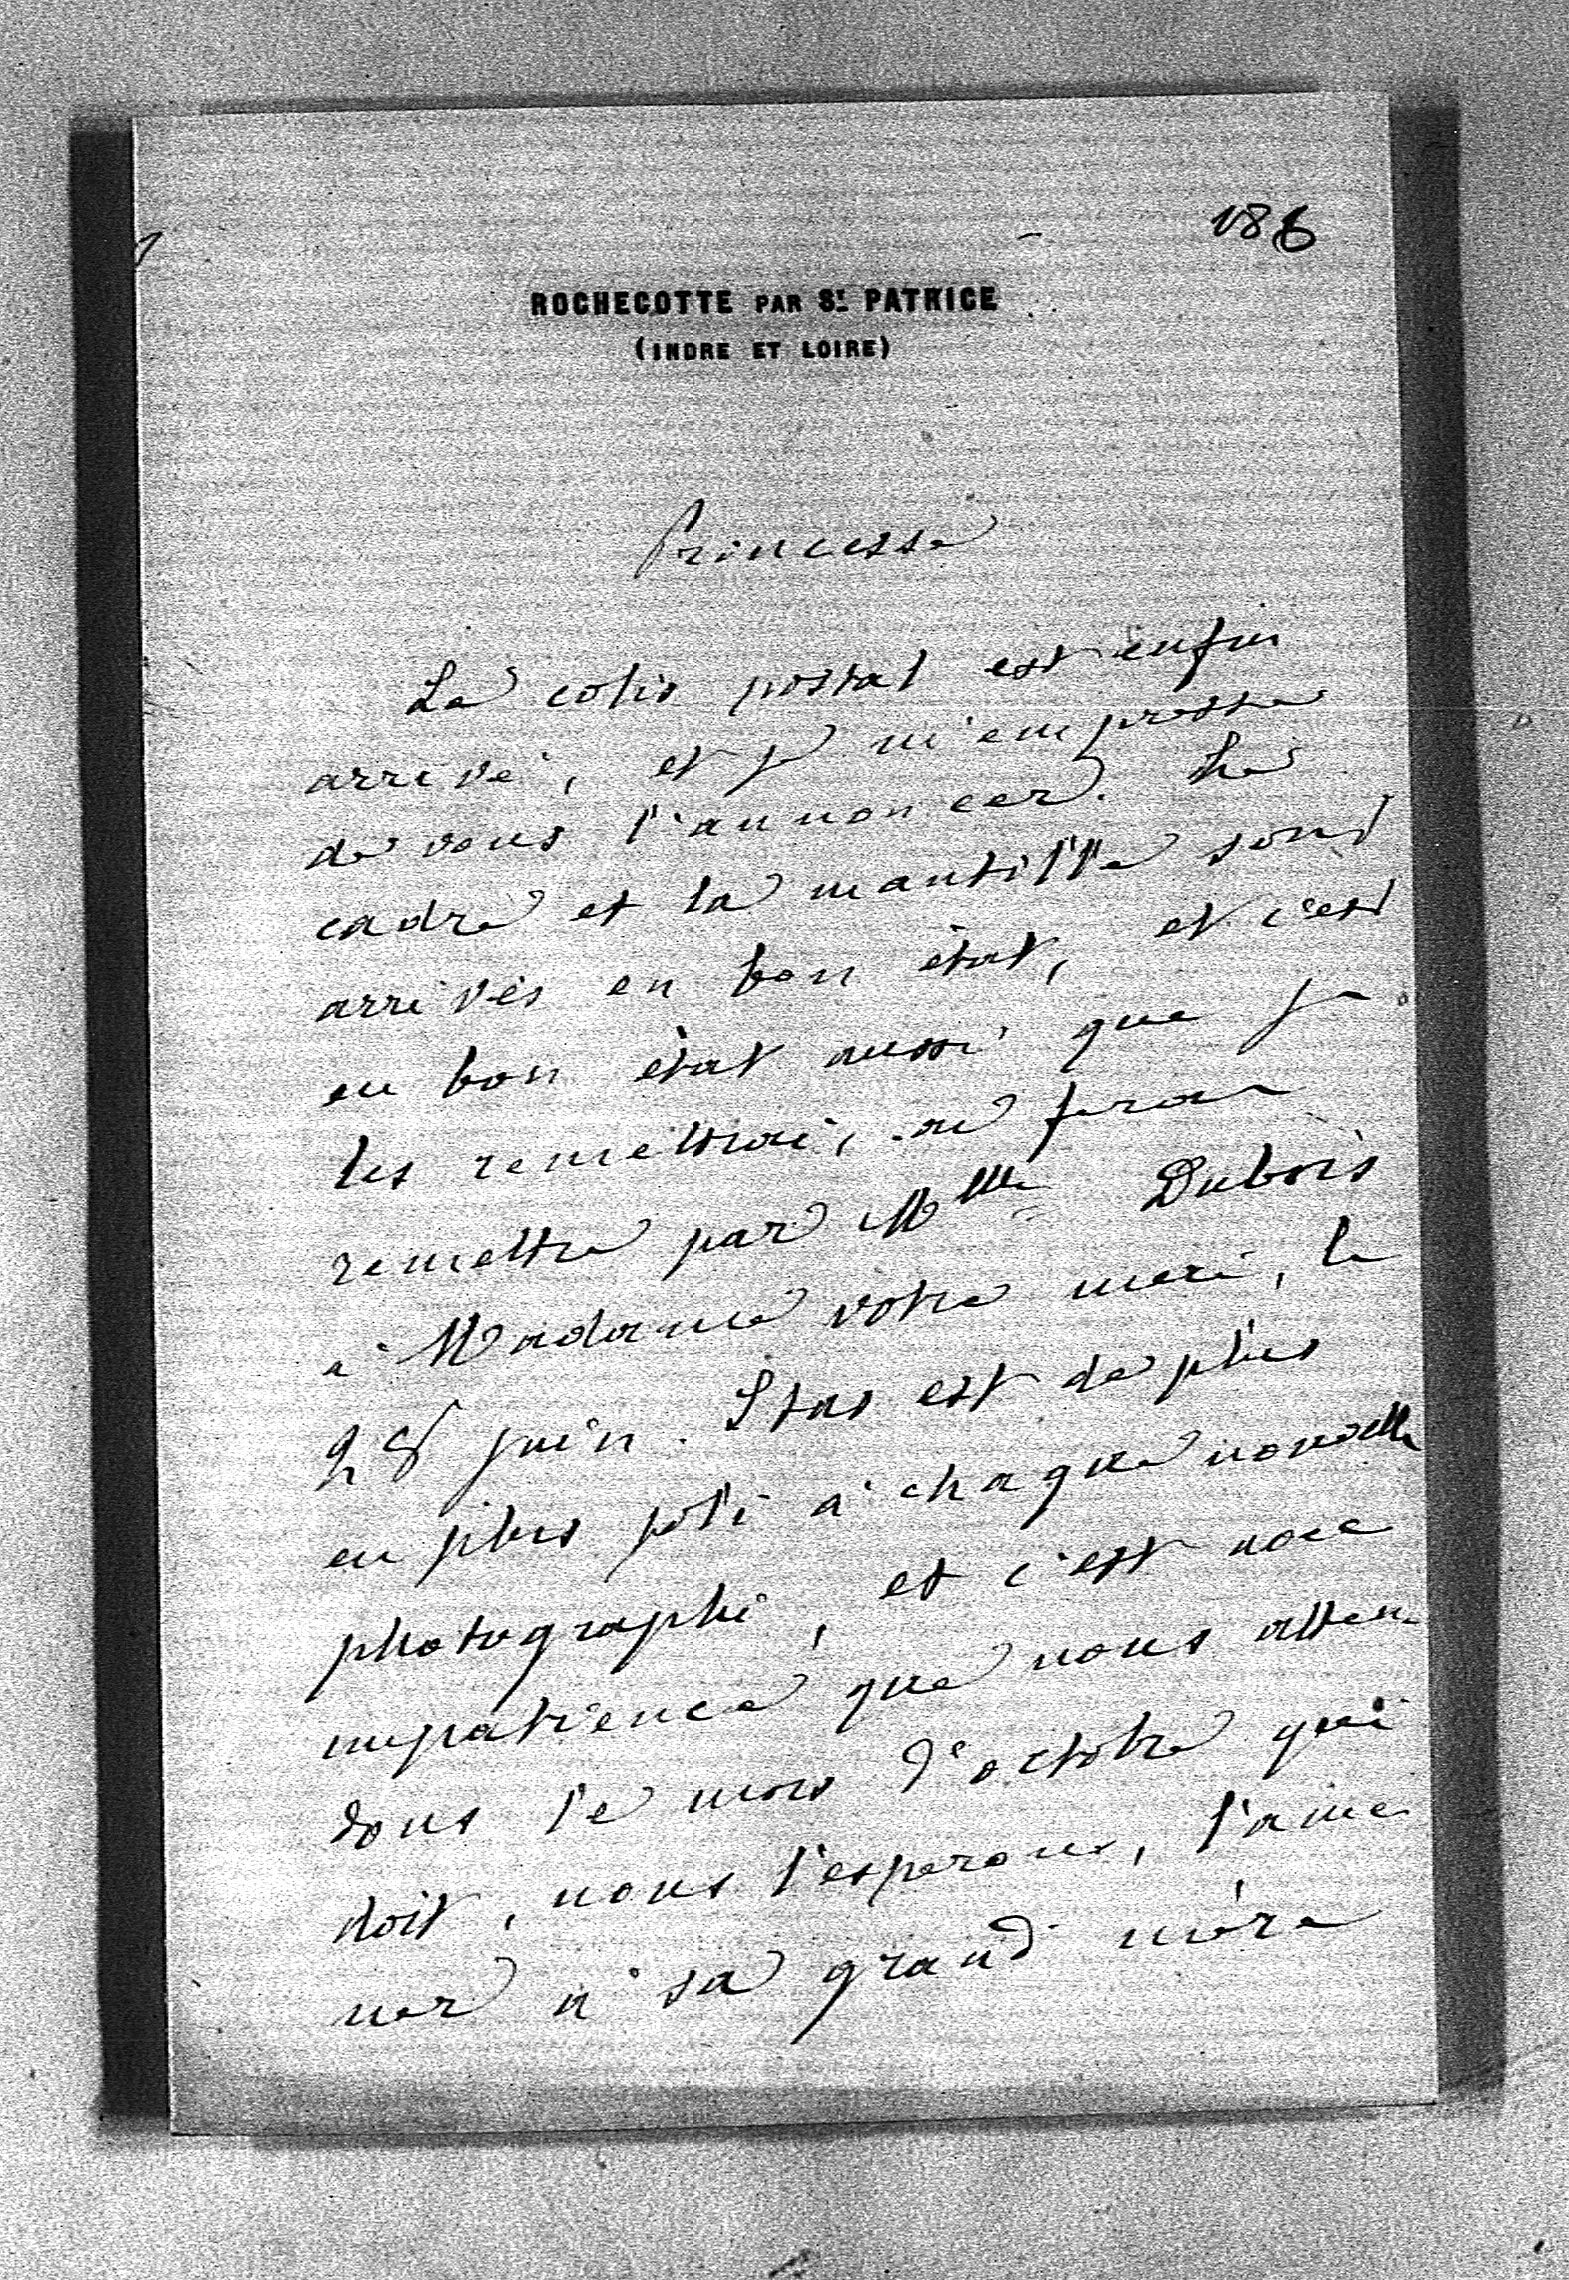 186
ROCHECOTTE PAR ST PATRICE
(INDRE ET LOIRE)
Princesse
Le colis postal est enfin
arrivé, et je m'empresse
de vous l'annoncer. Le
cadre et la mantille sont
arrivés en bon état, et c'est
en bon état aussi que je
les remettrai, ou ferai
remettre par Mlle Dubois
à Madame votre mère, le
28 juin. Stas est de plus
en plus joli à chaque nouvelle
photographie, et c'est avec
impatience que nous atten
dons le mois d'octobre qui
doit, nous l'esperons, l'ame
ner à sa grand mère